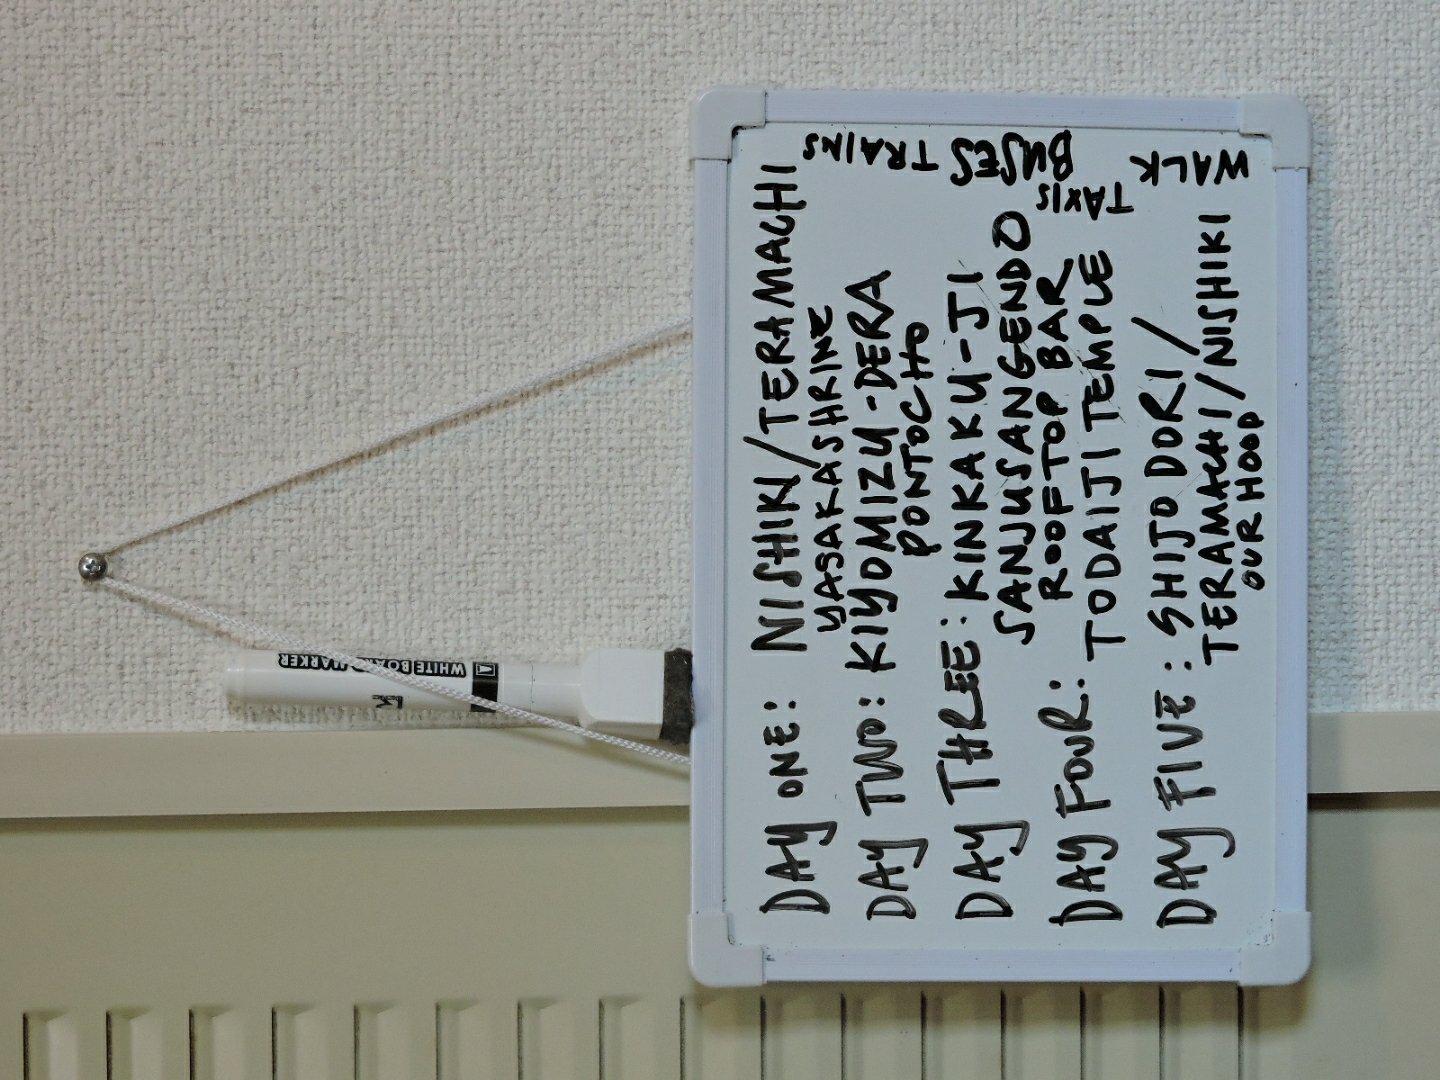 DAY ONE: NISHIKI/TERAMACHI
YASAKA SHRINE
DAY TWO: KIYOMIZU-DERA
PONTOCHO
DAY THREE: KINKAKU-JI
SANJUSANGENDO
ROOFTOP BAR
DAY FOUR: TODAIJI TEMPLE
DAY FIVE: SHIJO DORI/
TERAMACHI/NISHIKI
OUR HOOD
TRAINS
BUSES
TAXIS
WALK
WHITE BOARD MARKER